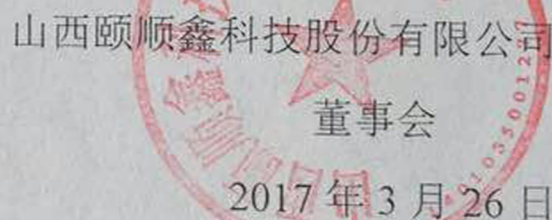 山西颐顺鑫科技股份有限公司
董事会
2017 年 3 月 26 日